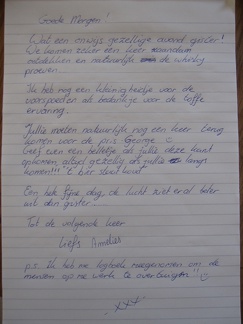 Goede Morgen!
Wat een onwijs gezellige avond gister!
We komen zeker een keer
ontdekken en natuurlijk de whisky
proeven.
Ik heb nog een kleinigheidje voor de
voorspoeder als bedankje voor de toffe
ervaring.
Jullie moeten natuurlijk nog een keer terug
komen voor de pris George
Geef even een belletje als jullie deze kant
opkomen, altijd gezellig als jullie langs
komen!!! 't bier staat koud
Een hele fijne dag, de lucht ziet er al beter
uit dan gister.
Tot de volgende keer
Liefs Annelies
p.s. Ik heb me logboek meegenomen om de
mensen op me werk te overtuigen!!
xxx